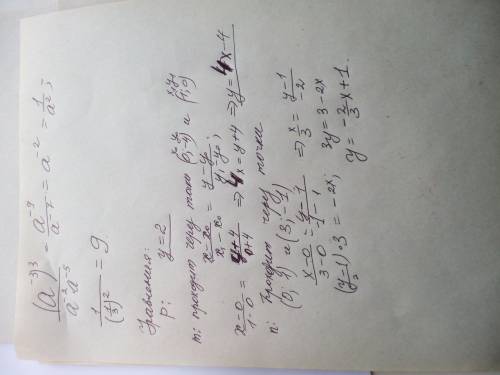 (a⁻³)³ / a⁻²a⁻⁵ = a⁻⁹ / a⁻⁷ = a⁻² = 1/a²;
1/(1/3)² = 9
Уравнения:
p: y=2
m: проходит через точки (0;-4) и (1;0)
x-x₀ / x₁-x₀ = y-y₀ / y₁-y₀;
x-0 / 1-0 = y+4 / 0+4 ⇒ 4x = y+4 ⇒ y = 4x-4
n: Проходит через точки
(0; 1) и (3; -1)
x-0 / 3-0 = y-1 / -1-1 ⇒ x/3 = y-1 / -2
(y-1)·3 = -2x; 3y = 3-2x
y = -2/3 x+1.